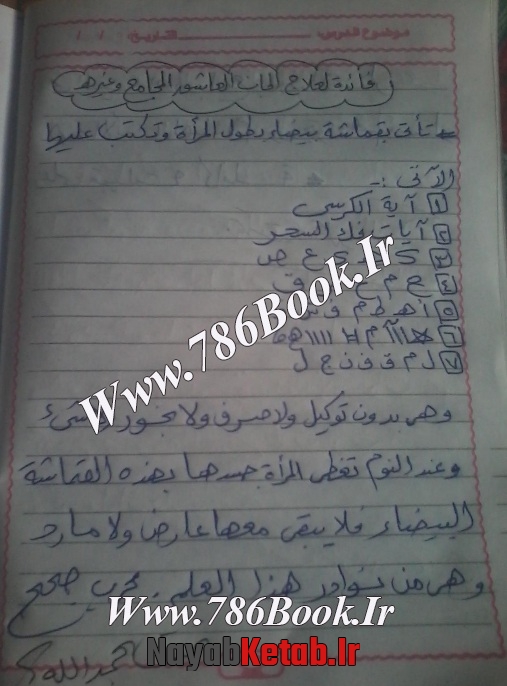 موضوع الدرس: التاريخ: / /
فائدة لعلاج الجان العاشق المجامع وغيرهـ
تأتى بقماشة بيضاء بطول المرأة وتكتب عليها
الآتى :-
١ آية الكرسى
٢ آيات فك السحر
٣ ع ص
٤ ح م ق
٥ أهطم
٦ هـ
٧ ل م ق ف ن ج ل
وهى بدون توكيل ولا صرف ولا بخور
وعند النوم تغطى المرأة جسدها بهذه القماشة
البيضاء فلا يبقى معها عارض ولا مارد
وهى من نوادر هذا العلم . مجرب صحيح
عبدالله
Www.786Book.Ir
Www.786Book.Ir
NayabKetab.Ir